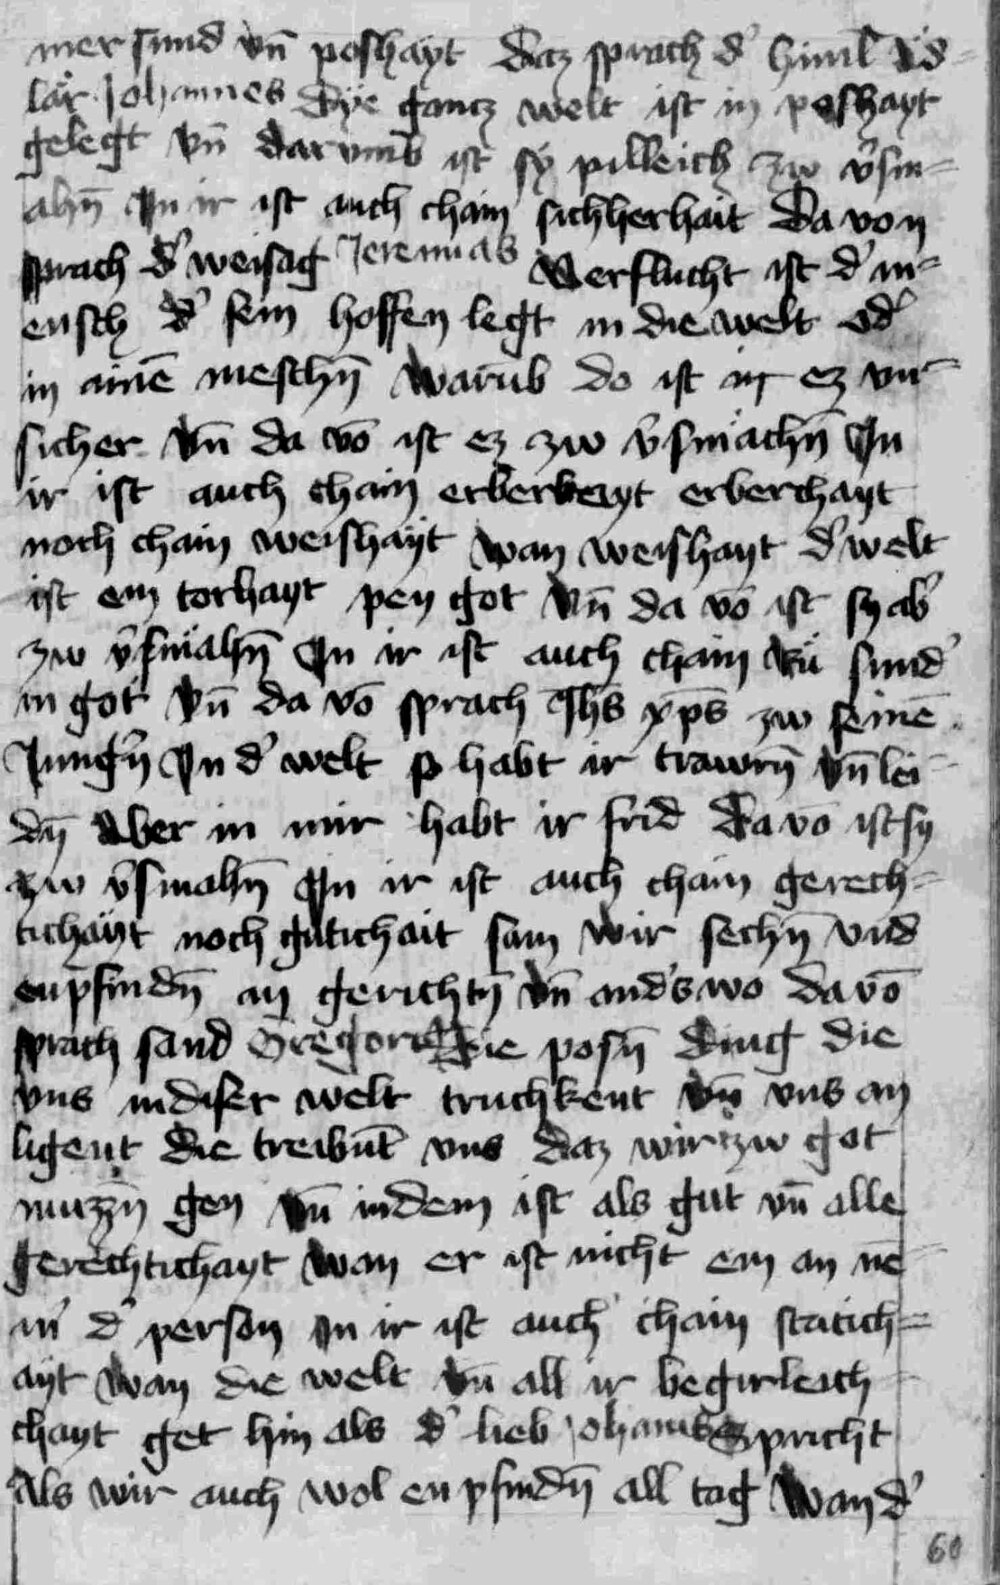 mer sund vn̄ poshayt daz sprach d' himl ad=
lar Johannes dye gantz welt ist in poshayt
gelegt vn̄ darumb ist sy pilleich zw v'sm=
ahn̄ In ir ist auch chain sichherhait Da von
sprach d' weisag Jeremias Verflucht ist d' m=
ensch d' sein hoffen legt in die welt od'
in ainē meschn̄ warūb do ist in ez vn=
sicher vn̄ da vō ist ez zw v'smächn̄ In
ir ist auch chain erberkeyt erberchayt
noch chain weishayt wan weishayt d' welt
ist ein torhayt pey got vn̄ da vō ist sy ab'
zw v'smälhn̄ In ir ist auch chain sund'
in got vn̄ da vō sprach Jhs xp̄s zw seinē
Jungn̄ In d' welt so habt ir trawrn̄ vn̄ lei=
dn̄ Aber in mir habt ir frid Da vō ist sy
zw v'smahn̄ In ir ist auch chain gerech=
tichayt noch gutichait sam wir sechn̄ vnd
enpfindn̄ an gerichtn̄ vn̄ and's wo Da vō
sprach sand Gregori Die posn̄ ding die
vns in diser welt truchkent vn̄ vns an
ligent die treibnt̄ vns daz wir zw got
muzzn̄ gen vn̄ in dem ist als gut vn̄ alle
gerechtichayt wan er ist nicht ein an nē=
m' d' person In ir ist auch chain statich=
ayt wan die welt vn̄ all ir begirleich=
chayt get hin als d' lieb Johannes Spricht
Als wir auch wol enpfindn̄ all tag Wan d'
60